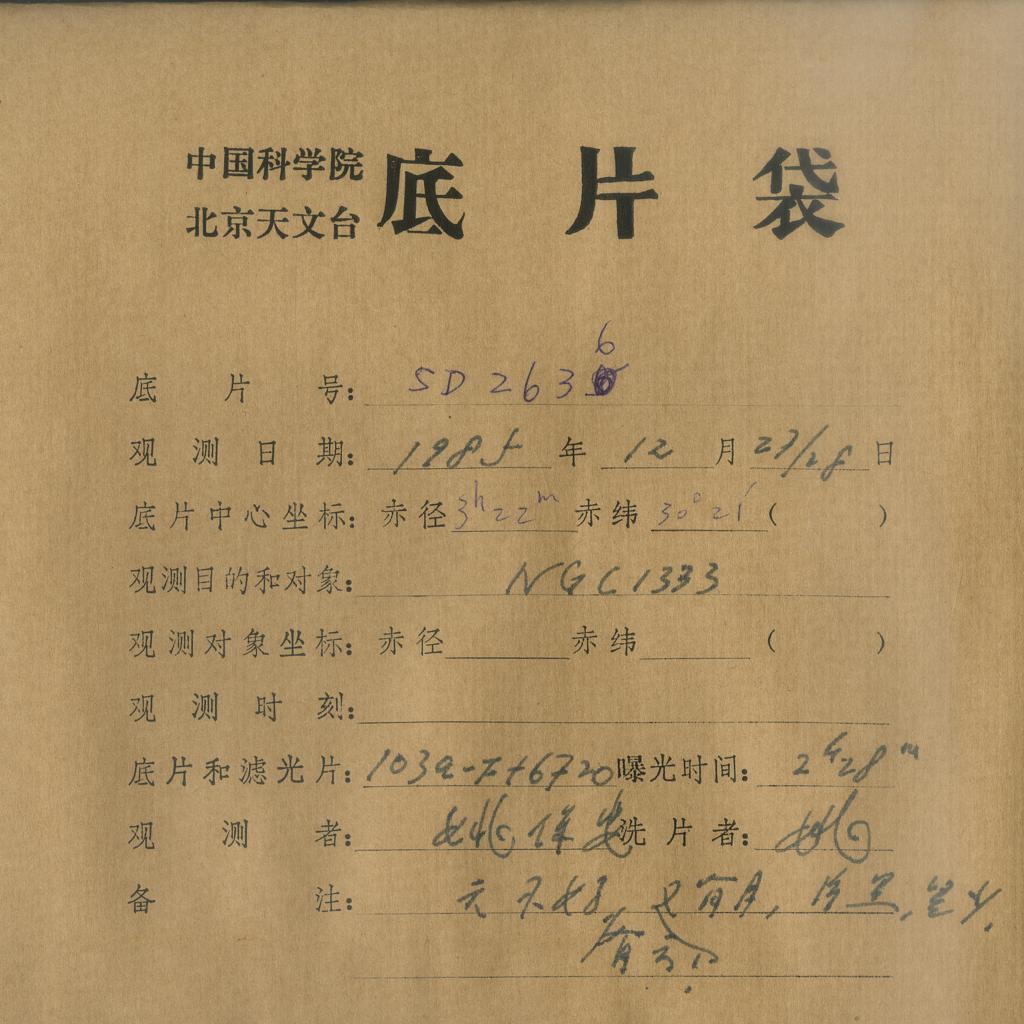 中国科学院
北京天文台
底片袋
底片号: SD 2636
观测日期: 1985年12月27/28日
底片中心坐标: 赤径 3h22m 赤纬 30°21′ ( )
观测目的和对象: NGC1333
观测对象坐标: 赤径 赤纬 ( )
观测时刻:
底片和滤光片: 103a-F+6720 曝光时间: 2h28m
观测者: 姚保安 洗片者: 姚
备注: 有月,